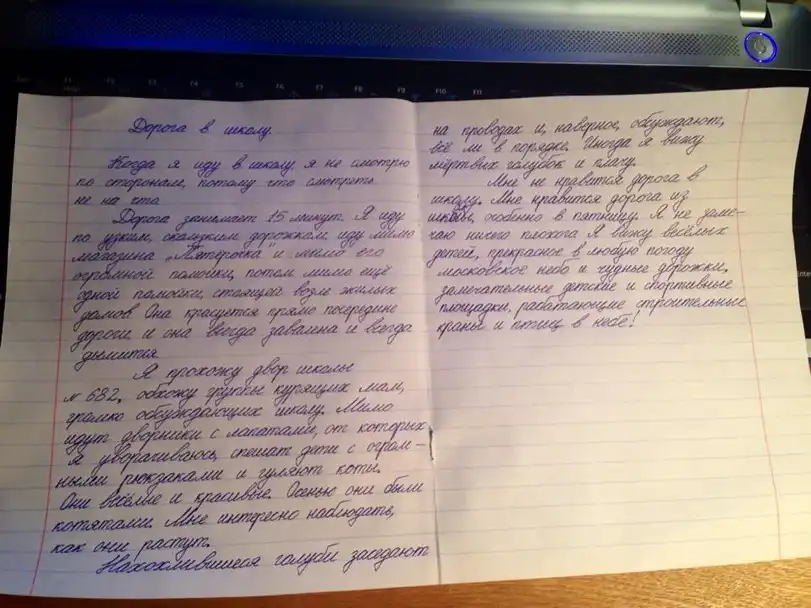 Дорога в школу.
Когда я иду в школу я не смотрю
по сторонам, потому что смотреть
не на что
Дорога занимает 15 минут. Я иду
по узким, скользким дорожкам, иду мимо
магазина „Пятёрочка" и мимо его
огромной помойки, потом мимо ещё
одной помойки, стоящей возле жилых
домов. Она красуется прямо посередине
дороги и она всегда завалена и всегда
дымится
Я прохожу двор школы
№ 682, обхожу группы курящих мам,
громко обсуждающих школу. Мимо
идут дворники с лопатами, от которых
я уворачиваюсь, спешат дети с огром-
ными рюкзаками и гуляют коты.
Они весёлые и красивые. Осенью они были
котятами. Мне интересно наблюдать,
как они растут.
Нахохлившиеся голуби заседают
на проводах и, наверное, обсуждают,
всё ли в порядке. Иногда я вижу
мёртвых голубок и плачу.
Мне не нравится дорога в
школу. Мне нравится дорога из
школы, особенно в пятницу. Я не заме-
чаю ничего плохого Я вижу весёлых
детей, прекрасное в любую погоду
московское небо и чудные дорожки,
замечательные детские и спортивные
площадки, работающие строительные
краны и птиц в небе!